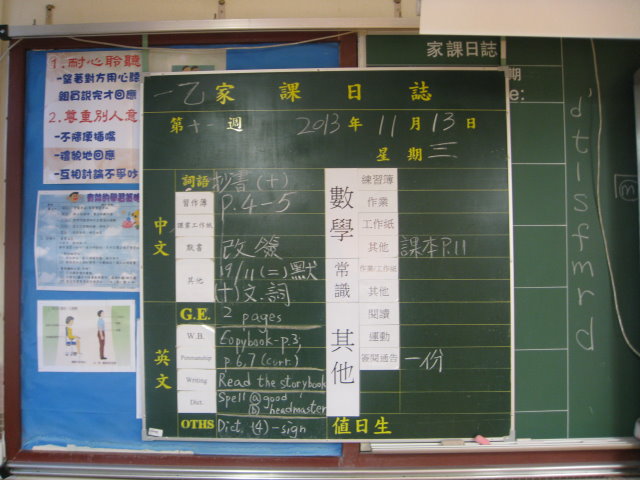 1.耐心聆聽
-望著對方用心聽
組員說完才回應
2.尊重別人意
-不隨便插嘴
-禮貌地回應
-互相討論不爭吵
一乙家課日誌
第十一週 2013年11月13日
星期三
中文
詞語 抄書(十)
習作簿 P.4-5
課堂工作紙
默書 改簽
其他 19/11(二)默
(十)文.詞
英文
G.E. 2 pages
W.B. Copybook-p.3,
Penmanship p.6,7 (corr.)
Writing Read the storybook
Dict. Spell ⓐ good
ⓑ headmaster
OTHS Dict. (4)-sign
數學
練習簿
作業
工作紙
其他 課本P.11
常識
作業/工作紙
其他
其他
閱讀
運動
簽閱通告 一份
值日生
家課日誌
期
e:
d'
t
l
s
f
m
r
d
m